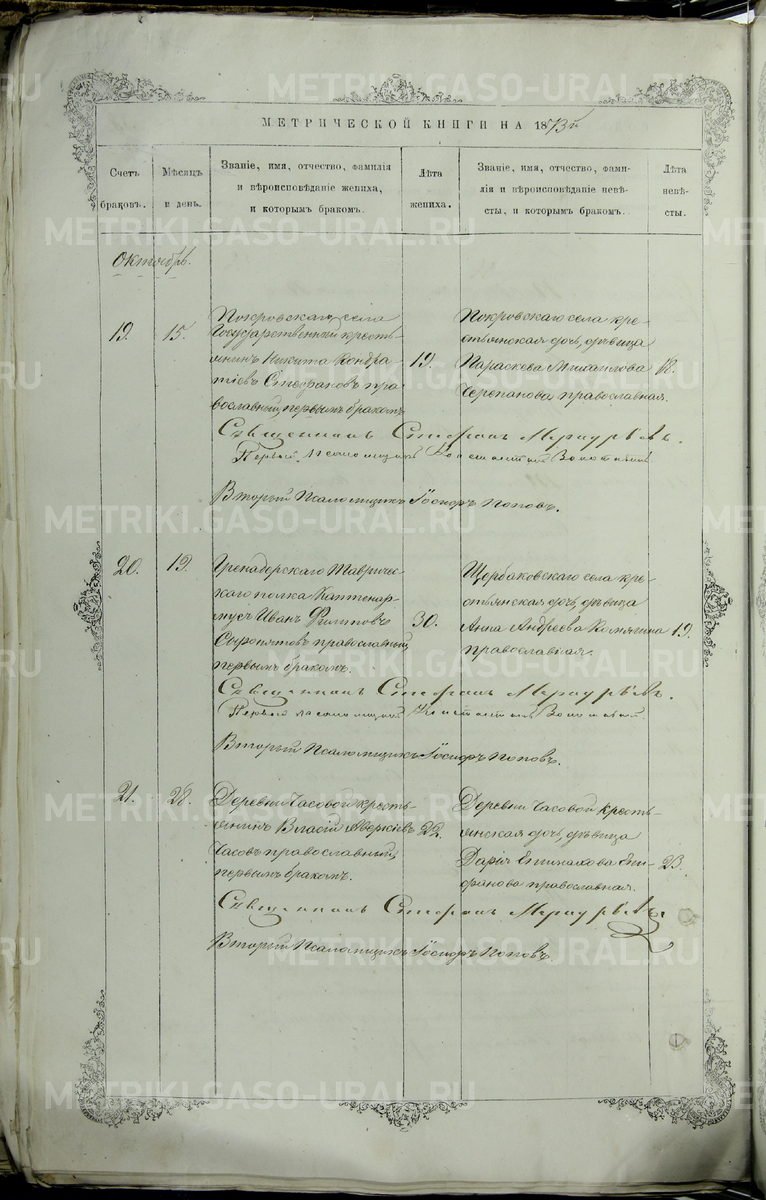 МЕТРИЧЕСКОЙ КНИГИ НА 1873й
Счетъ браковъ.
Мѣсяцъ и день.
Званіе, имя, отчество, фамилія и вѣроисповѣданіе жениха, и которымъ бракомъ.
Лѣта жениха.
Званіе, имя, отчество, фамилія и вѣроисповѣданіе невѣсты, и которымъ бракомъ.
Лѣта невѣсты.
Октябрь.
19. 15.
Покровскаго села
Государственный кресть-
янинъ Никита Кондра-
тіевъ Стефановъ пра-
вославный, первымъ бракомъ
19
Покровскаго села кре-
стьянская дочь, дѣвица
Параскева Михаилова
Черепанова, православная.
18.
Священникъ Стефанъ
Первый псаломщикъ
Второй Псаломщикъ Іосифъ Поповъ.
20. 19.
Гренадерскаго Тавриче-
скаго полка Каптенар-
мусъ Иванъ Филиповъ
Сыропятовъ православный,
первымъ бракомъ.
30.
Щербаковскаго села кре-
стьянская дочь, дѣвица
Анна Андреева
православная.
19.
Священникъ Стефанъ
Первый псаломщикъ
Второй Псаломщикъ Іосифъ Поповъ.
21. 28.
Деревни Часовой кресть-
янинъ Власій Аверкіевъ
Часовъ православный,
первымъ бракомъ.
22.
Деревни Часовой кресть-
янская дочь, дѣвица
Дарія Епимахова Епи-
фанова православная.
23.
Священникъ Стефанъ
Второй Псаломщикъ Іосифъ Поповъ.
METRIKI.GASO-URAL.RU